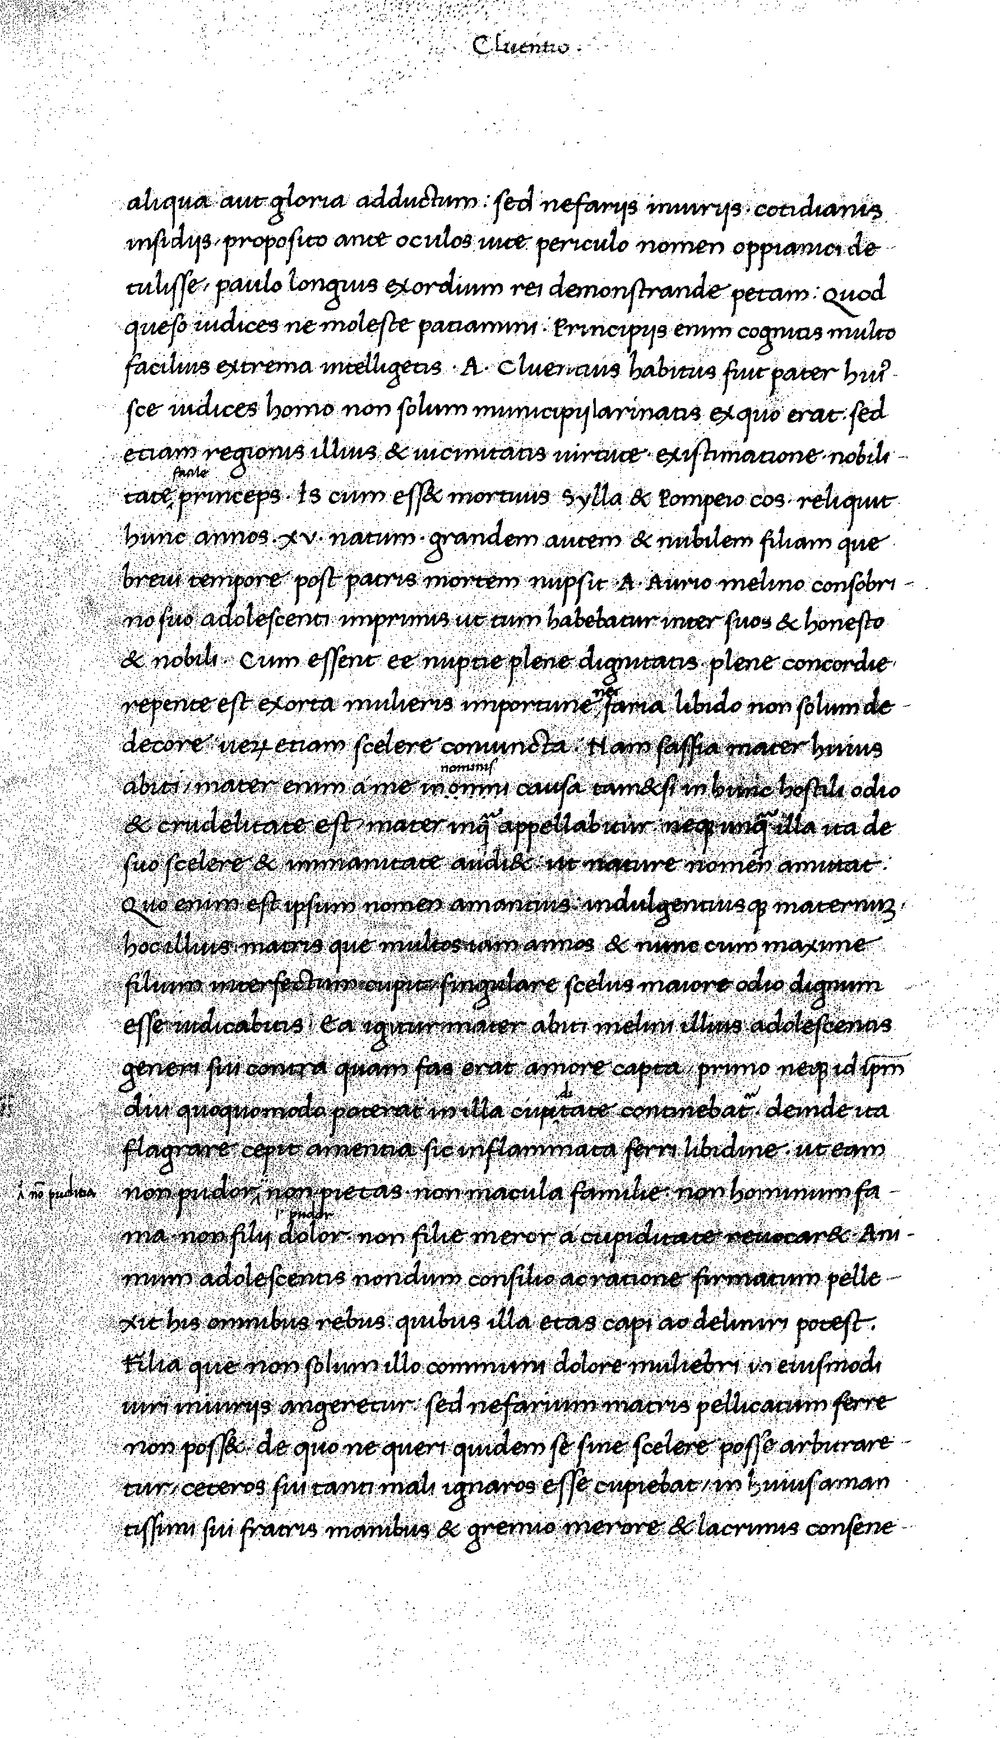 Cluentio.
aliqua aut gloria adductum: sed nefariis iniuriis. cotidianis
insidiis, proposito ante oculos uite periculo nomen oppianici de
tulisse, paulo longius exordium rei demonstrande petam. Quod
queso iudices ne moleste patiamini. Principiis enim cognitis multo
facilius extrema intelligetis. A. Cluentius habitus fuit pater hui᾽
sce iudices homo non solum municipii larinatis ex quo erat. sed
etiam regionis illius & uicinitatis uirtute. existimatione. nobili-
facile
tate princeps. Is cum ess& mortuus Sylla & Pompeio cos. reliquit
hunc annos .xv. natum. grandem autem & nubilem filiam que
breui tempore post patris mortem nupsit A. Aurio melino consobri-
no suo adolescenti imprimis ut tum habebatur inter suos & honesto
& nobili. Cum essent ee nuptie plene dignitatis. plene concordie.
nef
repente est exorta mulieris importune faria libido non solum de-
decore ueꝝ etiam scelere coniuncta. Nam sassia mater huius
nominis
abiti, mater enim a me in omni causa tam&si in hunc hostili odio
& crudelitate est, mater inq̃ appellabitur. neqꝫ unq̃ illa ita de
suo scelere & immanitate audi&. ut nature nomen amittat.
Quo enim est ipsum nomen amantius. indulgentiusqꝫ maternuꝫ.
hoc illius matris que multos iam annos & nunc cum maxime
filium interfectum cupit, singulare scelus maiore odio dignum
esse iudicabitis. Ea igitur mater abiti melini illius adolescentis
generi sui contra quam fas erat amore capta, primo neqꝫ id ip̄m
diu quoquomodo poterat in illa cupitate continebat. deinde ita
flagrare cepit amentia sic inflammata ferri libidine. ut eam
ł nō pudicia
non pudor, non pietas. non macula familie. non hominum fa-
ł pudor
ma. non filii dolor. non filie meror a cupiditate reuocar&. Ani-
mum adolescentis nondum consilio ac ratione firmatum pelle-
xit his omnibus rebus. quibus illa etas capi ac deliniri potest.
Filia que non solum illo communi dolore muliebri in eiusmodi
uiri iniuriis angeretur. sed nefarium matris pellicatum ferre
non poss&. de quo ne queri quidem se sine scelere posse arbitrare-
tur, ceteros sui tanti mali ignaros esse cupiebat, in huius aman
tissimi sui fratris manibus & gremio merore & lacrimis consene-